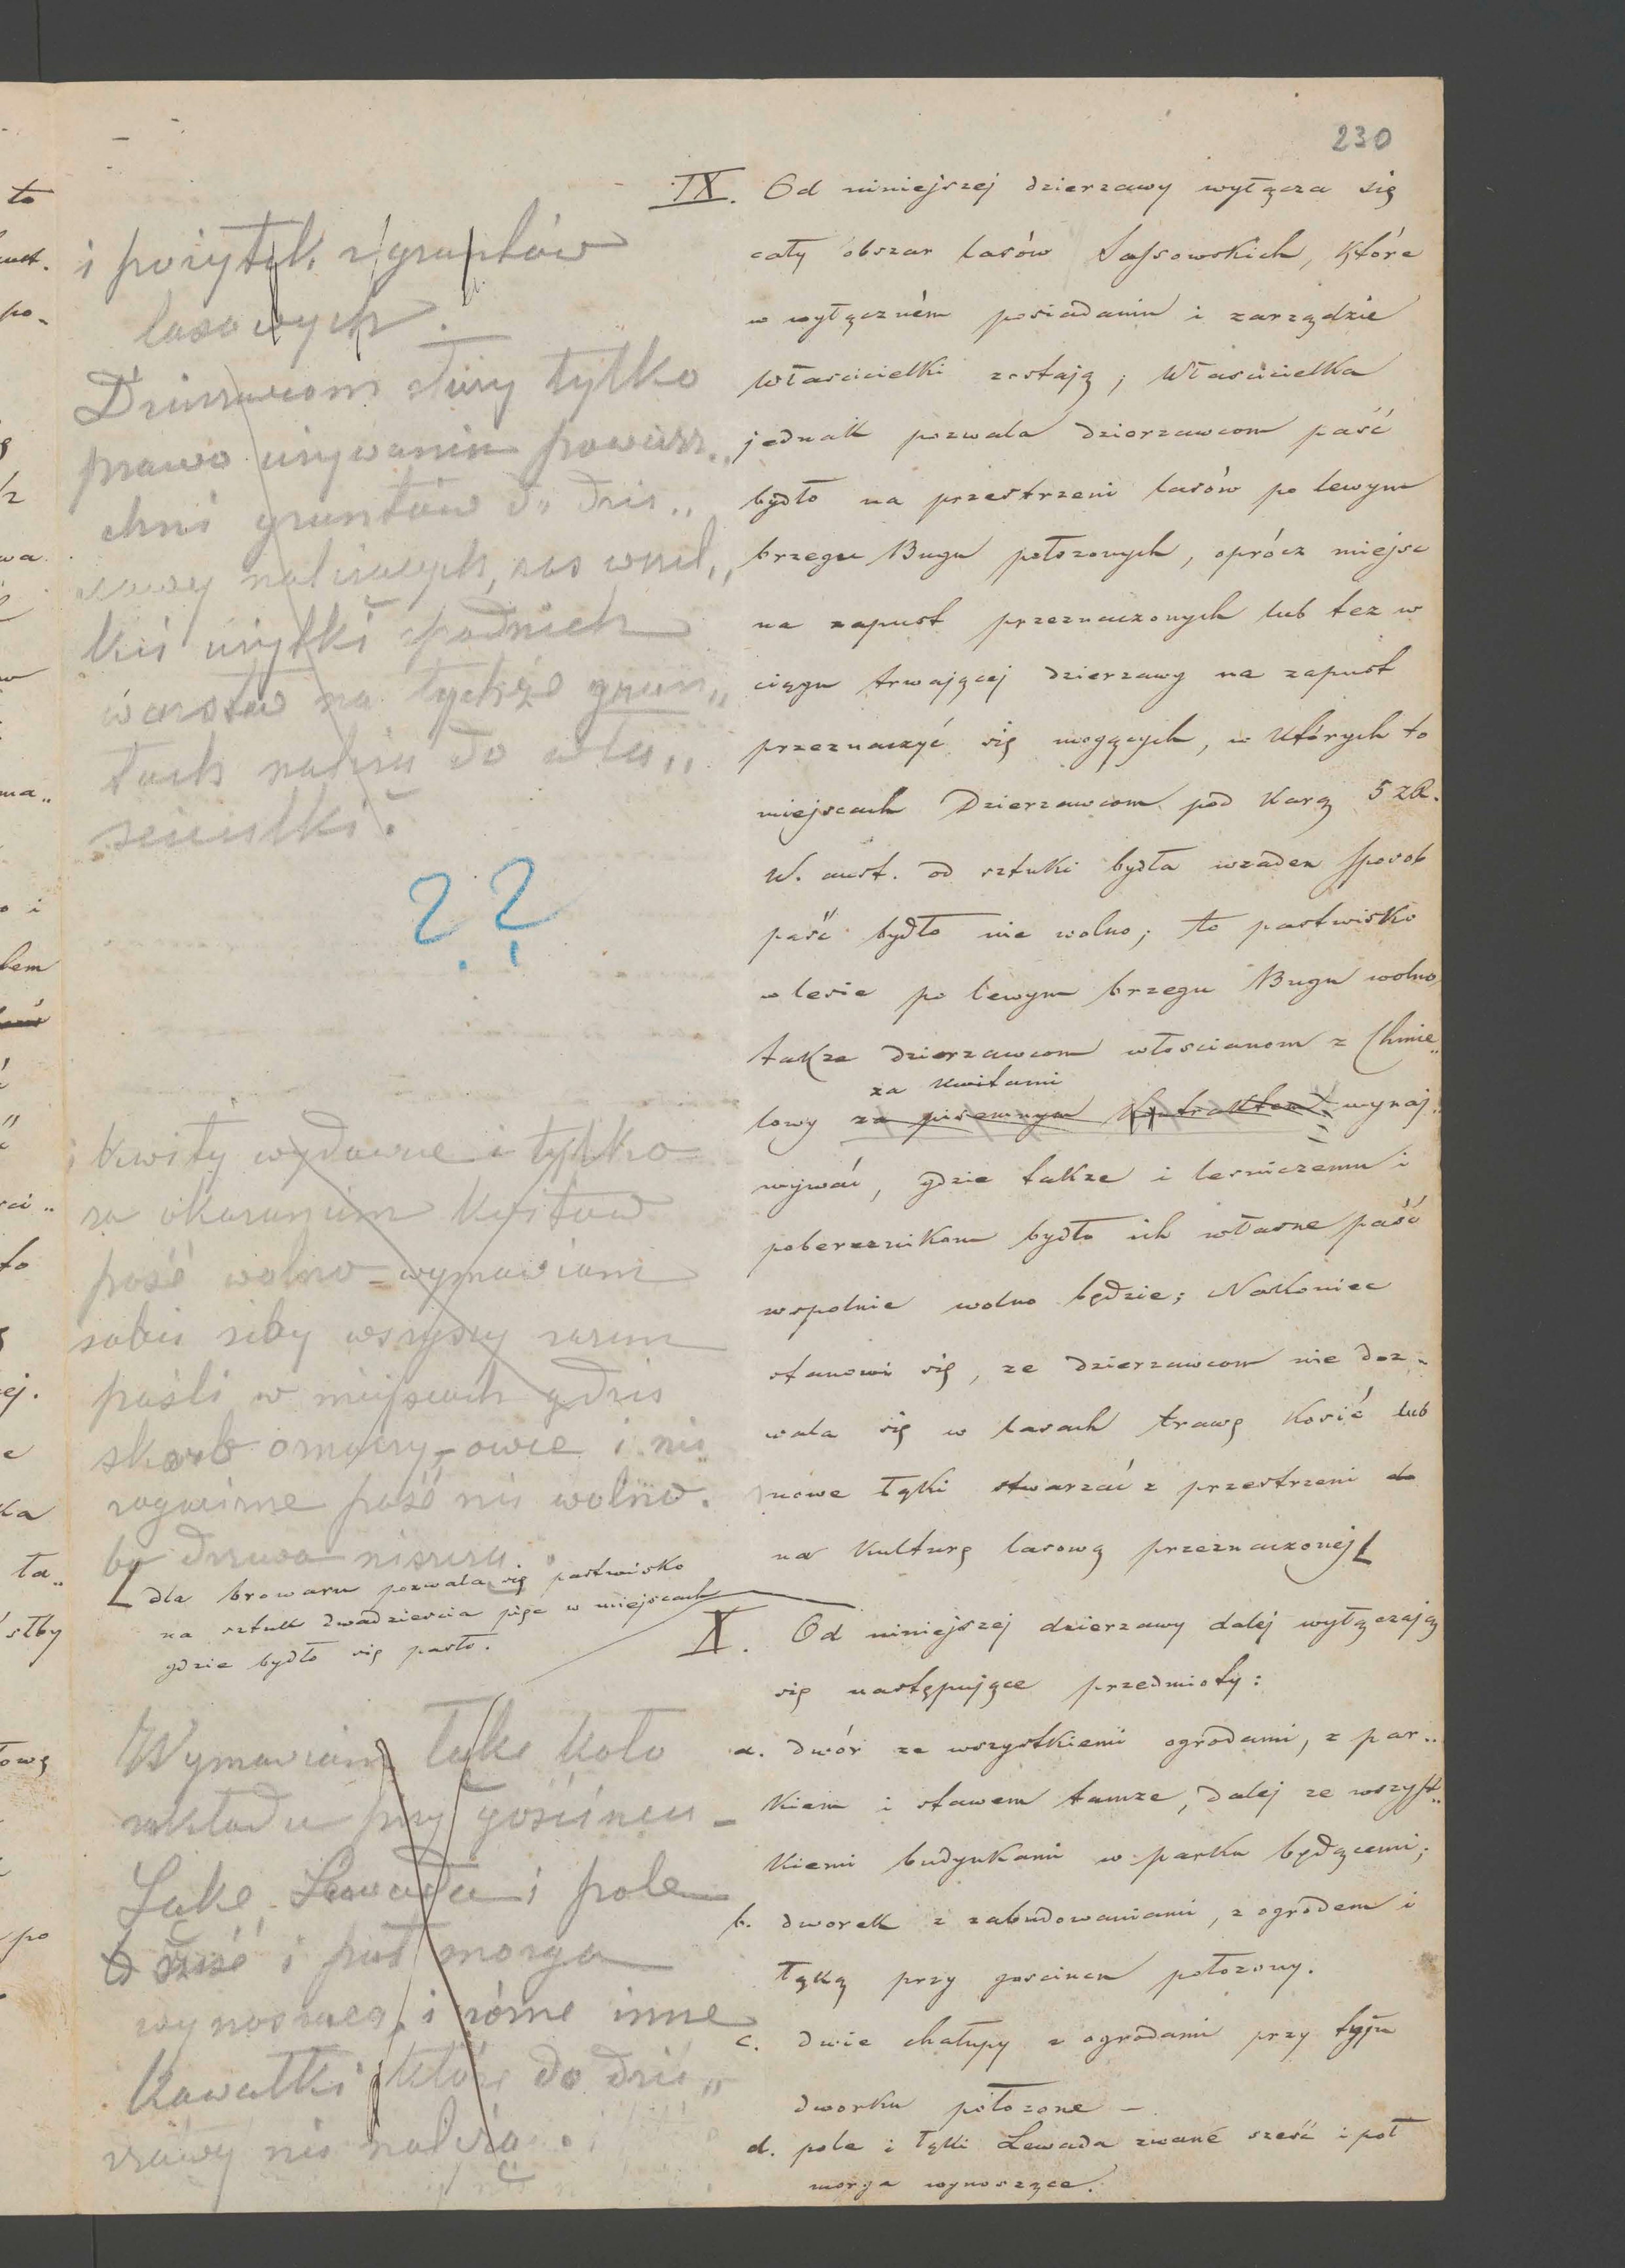 230
i pożytki z gruntów
lasowych.
Dzierżawcom służy tylko
prawo używania powierz„
chni gruntów do dzier„
żawy należących, zas wszel„
kie użytki spodnich
warstw na tychże grun„
tach należą do wła„
scicielki.
? ?
kwity wydawne i tylko
za okazaniem kwitow
paść wolno - wymawiam
sobie żeby wszyscy razem
paśli w miejscach gdzie
skarb oznaczy, - owce i nie
rogacizne paść nie wolno.
bo drzewa niszczą.
dla browaru pozwala się pastwisko
na sztuk dwadziescia pięc w miejscach
gdzie bydło się pasło.
Wymawiam łąke koło
zakładu przy gościńcu -
Łake, Lewada i pole
sześć i puł morga
wynoszące, i różne inne
kawałki które do dzie„
rżawy nie należą.
IX. Od niniejszej dzierzawy wyłącza się
cały obszar lasów Sassowskich, które
w wyłączném posiadaniu i zarządzie
Własicielki zostają; Własicielka
jednak pozwala dzierzawcom paść
bydło na przestrzeni lasów po lewym
brzegu Bugu położonych, oprócz miejsc
na zapust przeznaczonych lub tez w
ciągu trwającej dzierzawy na zapust
przeznaczyć się mogących, w których to
miejscach Dzierzawcom pod karą 5 złr.
w. aust. od sztuki bydła wzaden sposob
paść bydło nie wolno; to pastwisko
w lesie po lewym brzegu Bugu wolno
takze dzierzawcom włoscianom z Chmie„
za kwitami
lowy za pisemnym kontraktem wynaj„
mywać, gdzie takze i lesniczemu i
pobereznikom bydło ich własne paść
wspolnie wolno będzie; Nakoniec
stanowi się, ze dzierzawcom nie doz„
wala się w lasach trawę kosić lub
nowe łąki stwarzać z przestrzeni do
na kulturę lasową przeznaczonej
X. Od niniejszej dzierzawy dalej wyłączają
się następujące przedmioty:
a. dwór ze wszystkiemi ogrodami, z par„
kiem i stawem tamze, dalej ze wszyst„
kiemi budynkami w parku będącemi;
b. dworek z zabudowaniami, z ogrodem i
łąką przy goscincu położony.
c. dwie chałupy z ogrodami przy tyju
dworku położone -
d. pole i łąki Lewada zwané sześć i poł
morga wynoszące.